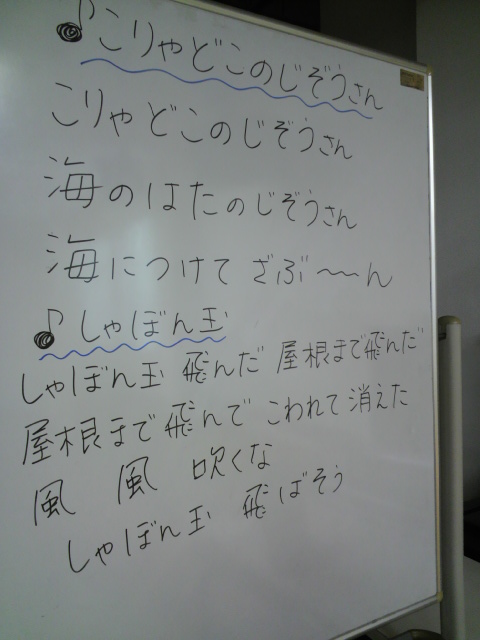 ♪こりゃどこのじぞうさん
こりゃどこのじぞうさん
海のはたのじぞうさん
海につけて ざぶ〜〜ん
♪しゃぼん玉
しゃぼん玉 飛んだ 屋根まで飛んだ
屋根まで飛んで こわれて消えた
風 風 吹くな
しゃぼん玉 飛ばそう